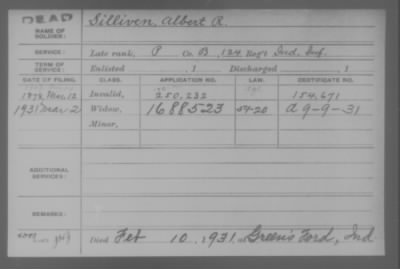 DEAD
NAME OF SOLDIER: Silliven, Albert R.
SERVICE: Late rank, P Co. B, 124 Reg't Ind. Inf.
TERM OF SERVICE: Enlisted , 1 Discharged , 1
DATE OF FILING. CLASS. APPLICATION NO. CERTIFICATE NO.
1878 Mar. 12 Invalid, 250,232 154,671
1931 Mar 2 Widow, 1688523 54-20 a 9-9-31
Minor,
ADDITIONAL SERVICES:
REMARKS:
Died Feb 10, 1931, at Green's Ford, Ind